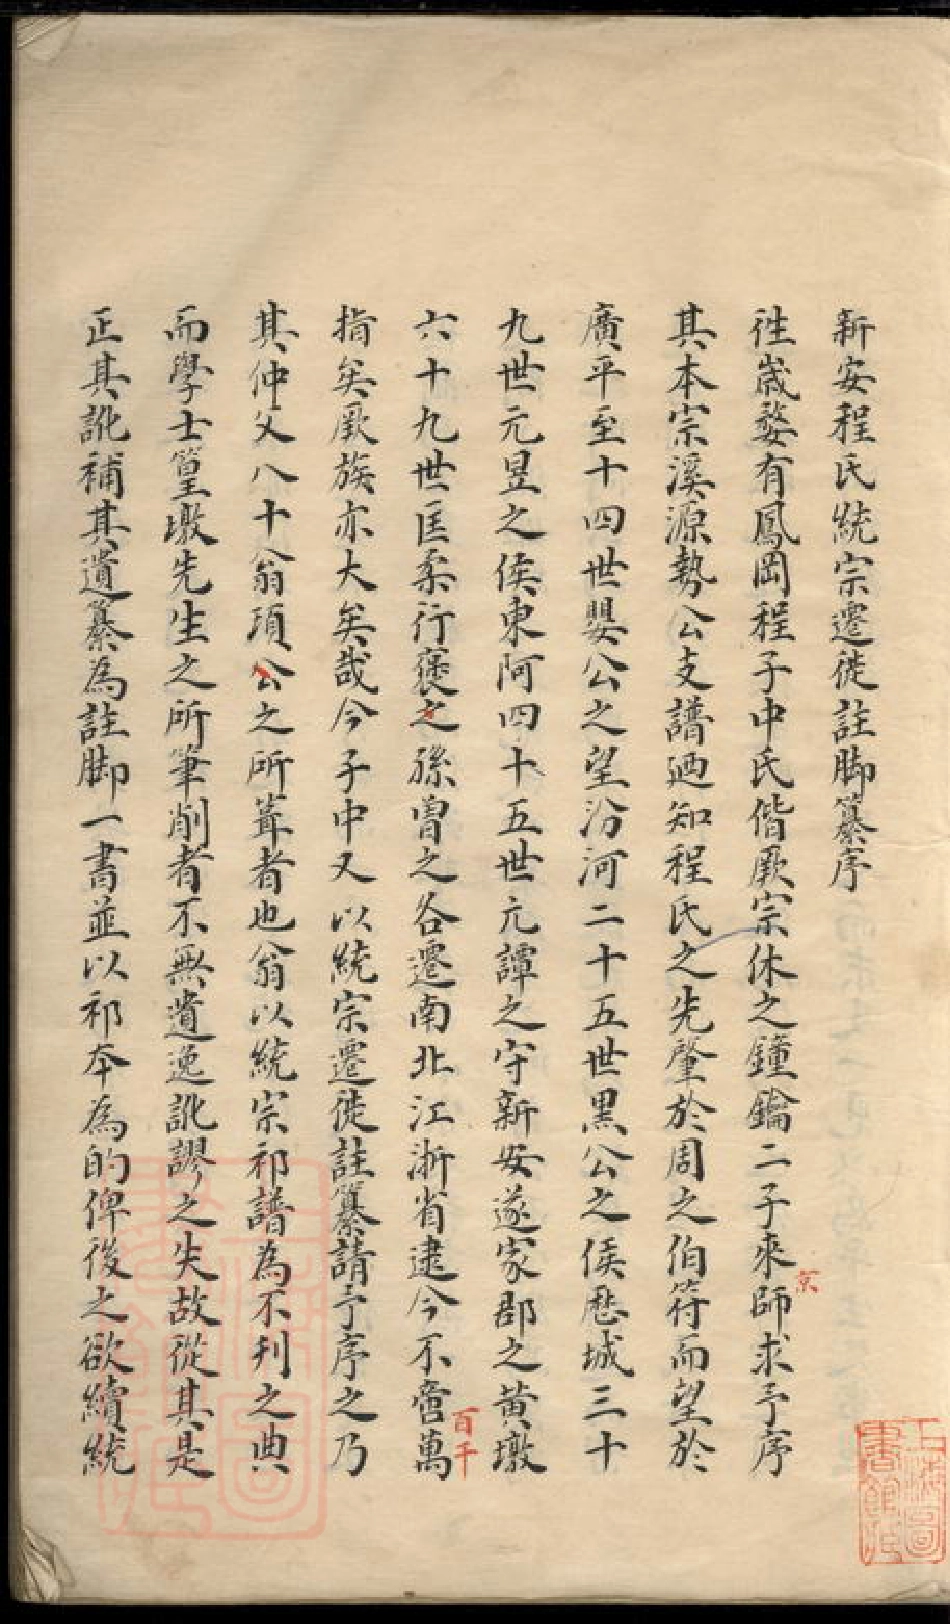 新安程氏統宗遷徙註脚纂序
徃嵗婺有鳳岡程子中氏偕厥宗休之鐘鑰二子來師求予序
京
其本宗溪源勢公支譜廼知程氏之先肇於周之伯符而望於
廣平至十四世嬰公之望汾河二十五世黑公之侯歷城三十
九世元昱之侯東阿四十五世元譚之守新安遂家郡之黄墩
六十九世匡柔行褒之孫曽之各遷南北江浙省逮今不啻萬
百千
指矣厥族亦大矣哉今子中又以統宗遷徙註纂請予序之乃
其仲父八十翁項公之所葺者也翁以統宗祁譜為不刋之典
而學士篁墩先生之所筆削者不無遺逸訛謬之失故從其是
正其訛補其遺纂為註脚一書並以祁本為的俾後之欲續統
上海圖書館藏
上海圖書館藏